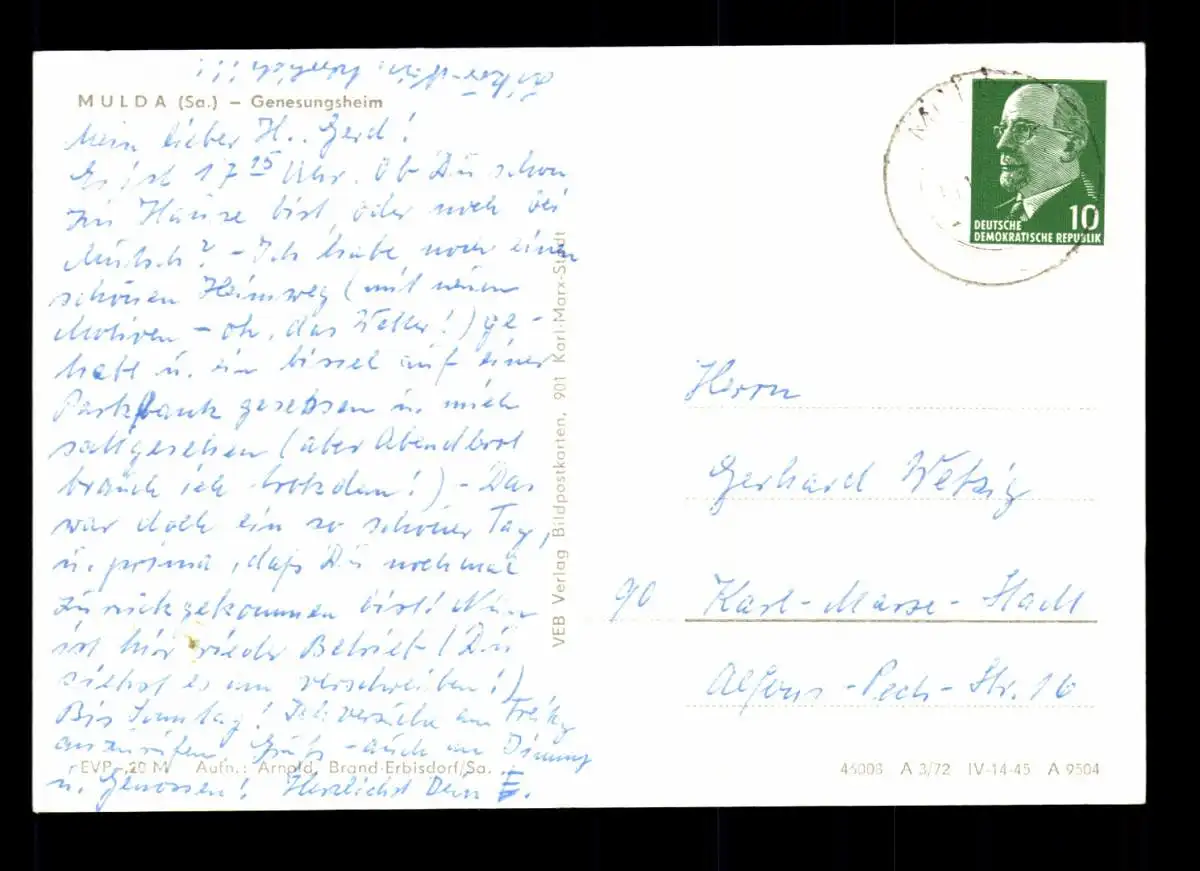 MULDA (Sa.) – Genesungsheim
Mein lieber H.. Gerd!
Es ist 17 15 Uhr. Ob Du schon
zu Hause bist, oder noch bei
? – Ich habe noch einen
schönen Heimweg (mit neuen
Motiven – oh, das Wetter!) ge-
habt u. ein bissel auf einer
Parkbank gesessen u. mich
sattgesehen (aber Abendbrot
brauch ich trotzdem!) – Das
war doch ein so schöner Tag,
u. prima, daß Du nochmal
zurückgekommen bist! Nun
ist hier wieder Betrieb (Du
siehst es am verschreiben!)
Bis Sonntag! Ich versuche am Freitag
anzurufen. Gruß – auch an
u. Genossen! Herzlichst Dein E.
EVP –,20 M Aufn.: Arnold, Brand-Erbisdorf/Sa.
VEB Verlag Bildpostkarten, 901 Karl-Marx-Stadt
DEUTSCHE
DEMOKRATISCHE REPUBLIK
10
Herrn
Gerhard Wetzig
90 Karl-Marx-Stadt
Alfons-Pech-Str. 16
A 3/72 IV-14-45 A 9504